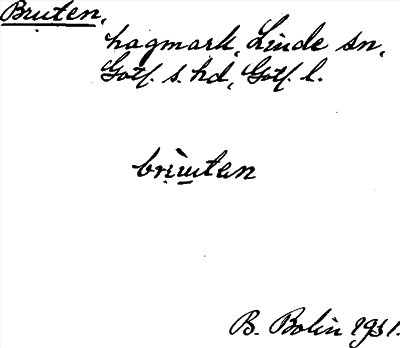 Bruten,
hagmark, Linde sn,
Gotl. s. hd, Gotl. l.
brùten
B. Bolin 1931.